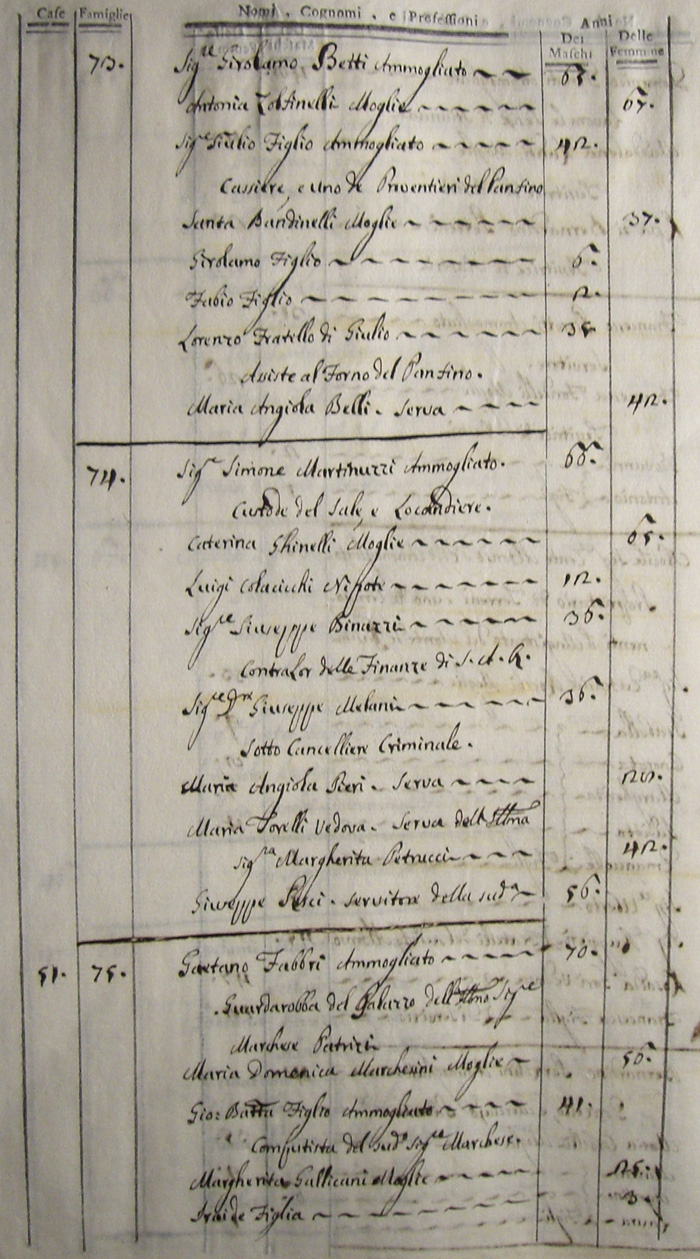 Case Famiglie Nomi, Cognomi, e Professioni Anni
Dei Maschi Delle Femmine
73. Sig.re Girolamo Betti Ammogliato 65.
Antonia Moglie 67.
Sig.re Giulio Figlio Ammogliato 42.
Cassiere, e uno de Proventieri del Panfino
Santa Bandinelli Moglie 37.
Girolamo Figlio 6.
Fabio Figlio 2.
Lorenzo Fratello di Giulio
Assiste al Forno del Panfino.
Maria Angiola Belli. Serva 42.
74. Sig.r Simone Martinuzzi Ammogliato. 66.
Custode del Sale, e Locandiere.
Caterina Ghinelli Moglie 65.
Luigi Colacicchi Nipote 12.
Sig.re Giuseppe Binazzi 36.
Contralor delle Finanze di S. A. R.
Sig.re D.re Giuseppe Melani 36.
Sotto Cancelliere Criminale.
Maria Angiola Pieri. Serva
Maria Torelli Vedova. Serva dell'Ill.ma
Sig.ra Margherita Petrucci 42.
Giuseppe Pesci. Servitore della sud.a 56.
51. 75. Gaetano Fabbri Ammogliato 70.
Guardarobba del Palazzo dell'Ill.mo Sig.re
Marchese Patrizi
Maria Domenica Marchesini Moglie 56.
Gio: Batta Figlio Ammogliato 41.
Computista del sud.o Sig.re Marchese.
Margherita Gallicani Moglie 25.
Figlia 3.